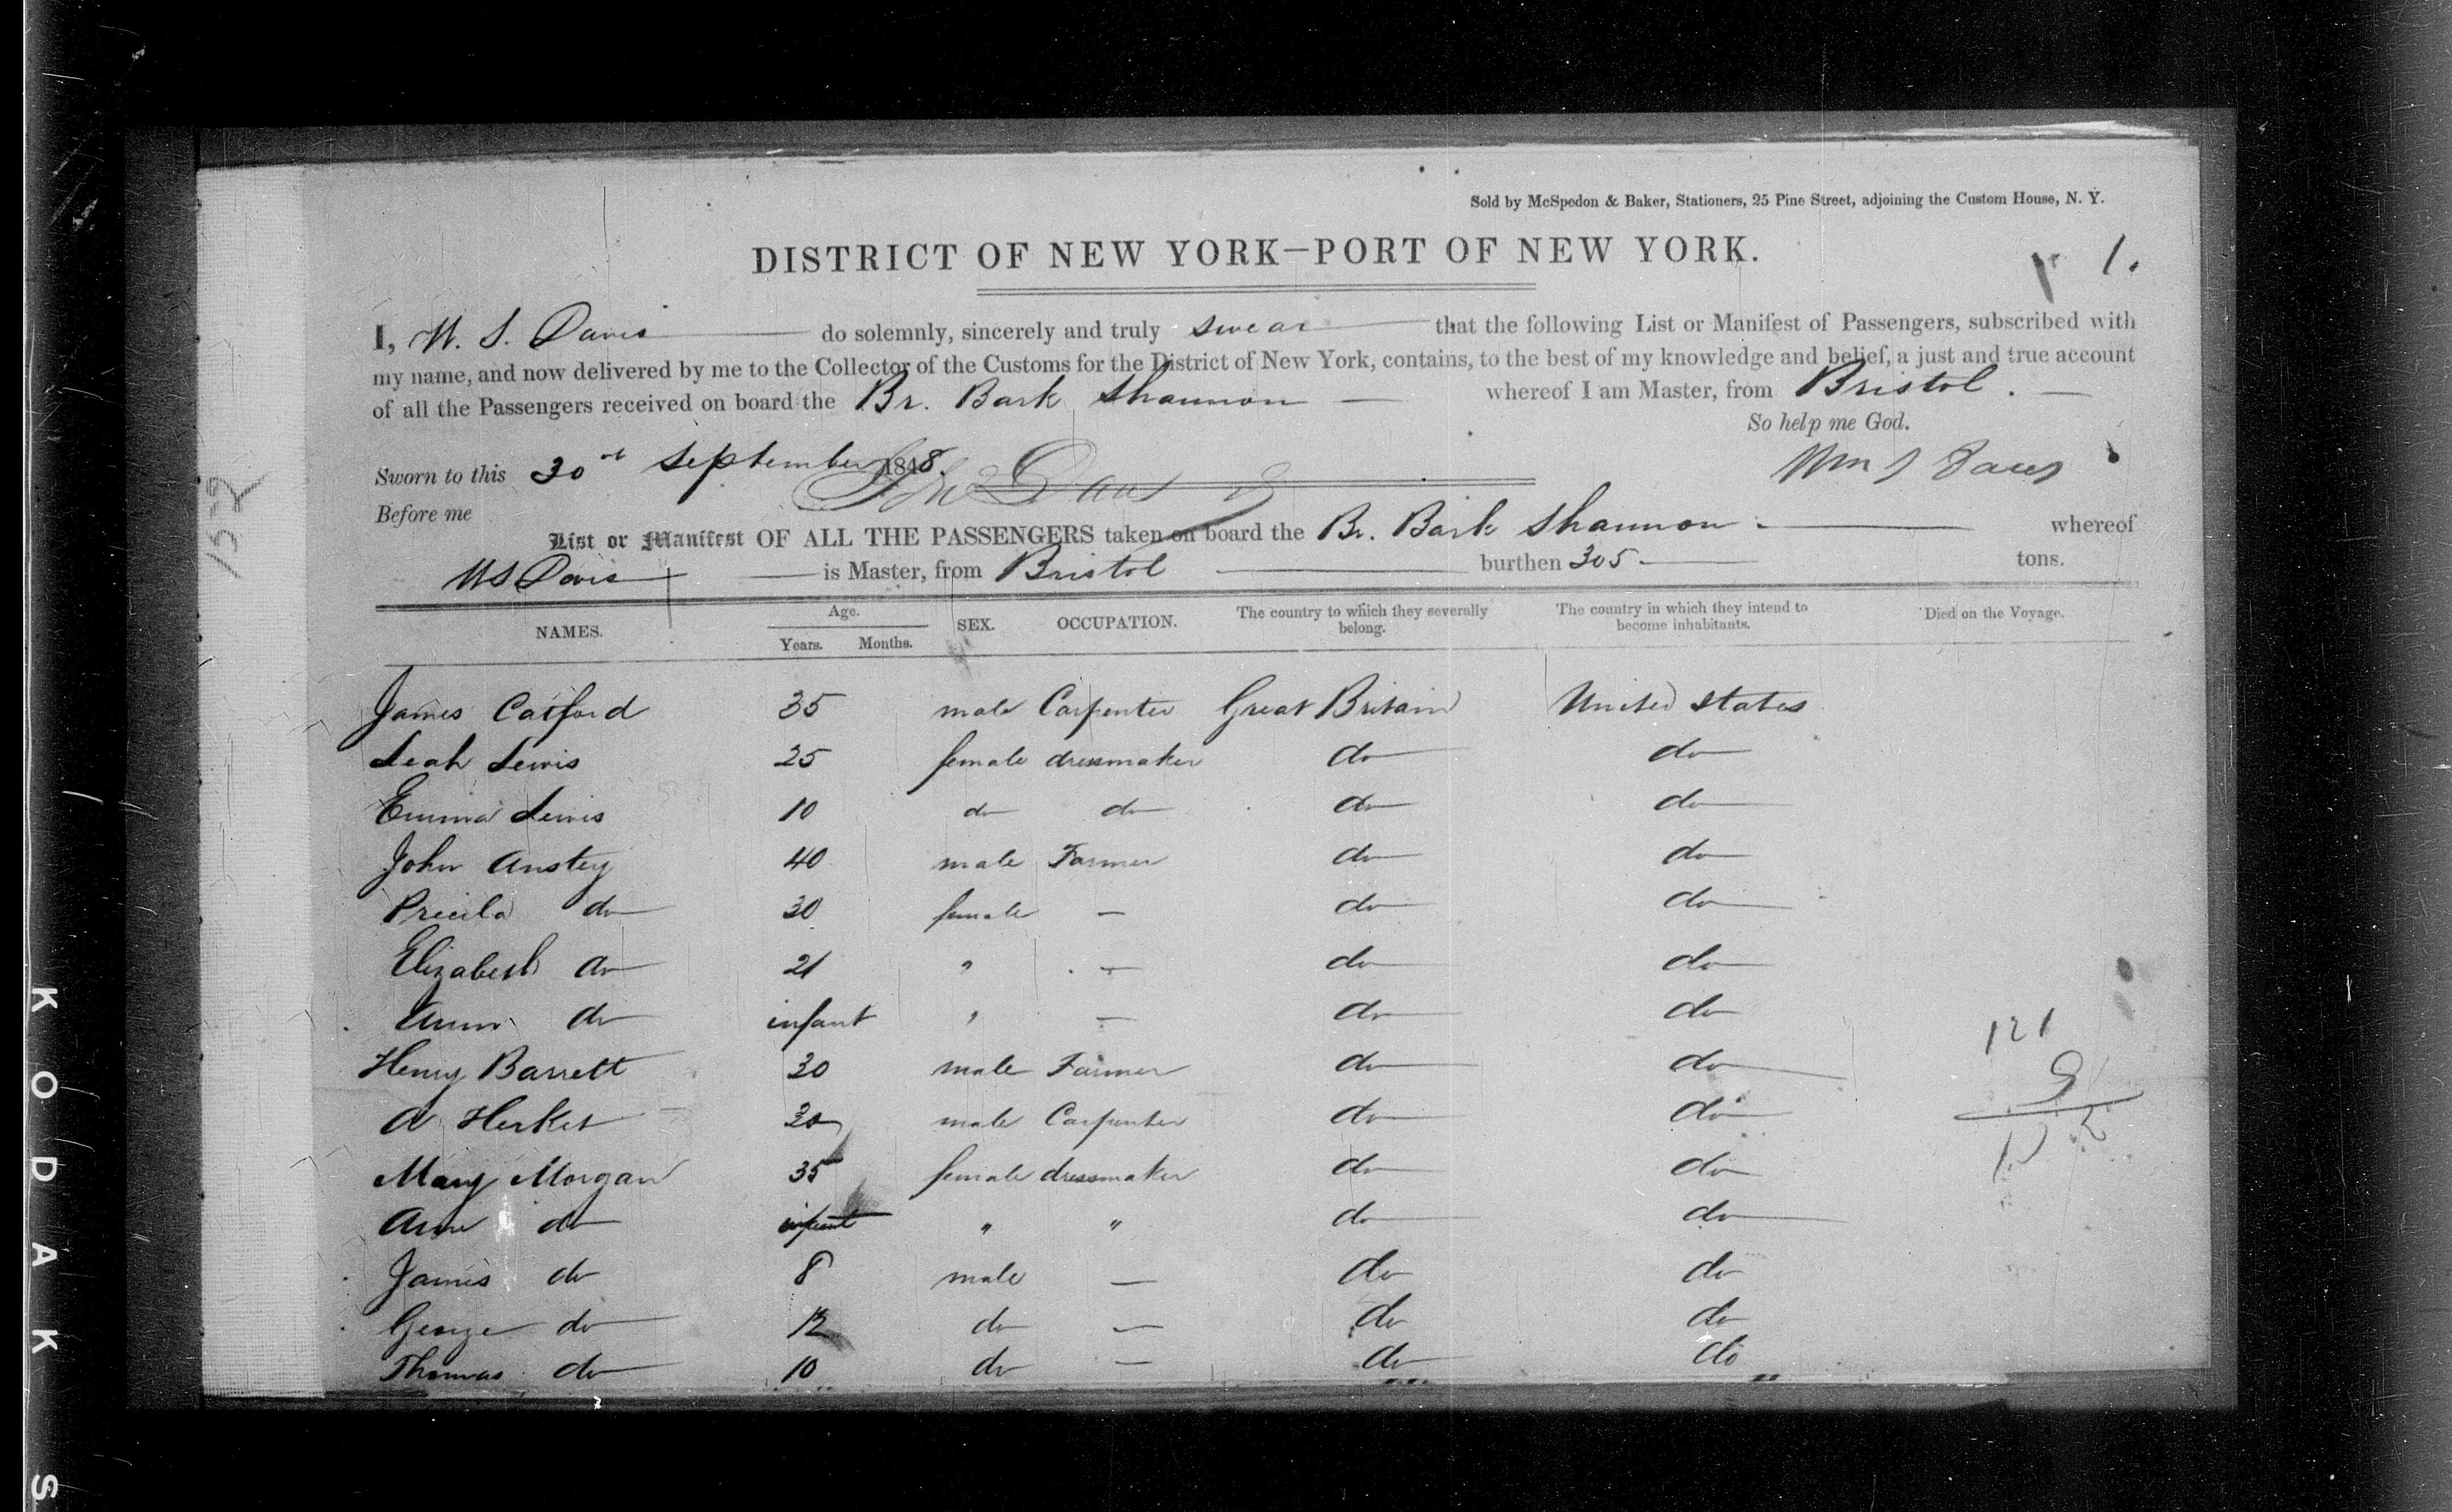 Sold by McSpedon & Baker, Stationers, 25 Pine Street, adjoining the Custom House, N. Y.
DISTRICT OF NEW YORK—PORT OF NEW YORK.
1.
I, W. S. Davis do solemnly, sincerely and truly swear that the following List or Manifest of Passengers, subscribed with
my name, and now delivered by me to the Collector of the Customs for the District of New York, contains, to the best of my knowledge and belief, a just and true account
of all the Passengers received on board the Br. Bark Shannon whereof I am Master, from Bristol.
So help me God.
Sworn to this 30 September 1848.
Before me
List or Manifest OF ALL THE PASSENGERS taken on board the Br. Bark Shannon whereof
W S Davis is Master, from Bristol burthen 305 tons.
NAMES. Age. Years. Months. SEX. OCCUPATION. The country to which they severally belong. The country in which they intend to become inhabitants. Died on the Voyage.
James Catford 35 male Carpenter Great Britain United States
Leah Lewis 25 female dressmaker do do
Emma Lewis 10 do do do do
John Anstey 40 male Farmer do do
Pricila do 30 female — do do
Elizabeth do 21 " — do do
Ann do infant " — do do
Henry Barrett 30 male Farmer do do
A Herket male Carpenter do do
Mary Morgan 35 female dressmaker do do
Ann do infant " " do do
James do 8 male — do do
George do 12 do — do do
Thomas do 10 do — do do
121
9
152
KODAK S